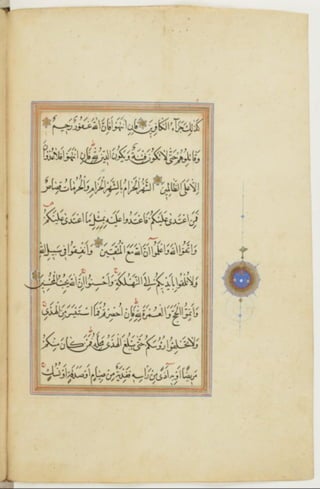 كَذَلِكَ جَزَآءُ الْكَافِرِينَ فَإِنِ انْتَهَوْا فَإِنَّ اللّهَ غَفُورٌ رَحِيمٌ
وَقَاتِلُوهُمْ حَتَّى لَا تَكُونَ فِتْنَةٌ وَيَكُونَ الدِّينُ لِلّهِ فَإِنِ انْتَهَوْا فَلَا عُدْوَانَ
إِلَّا عَلَى الظَّالِمِينَ الشَّهْرُ الْحَرَامُ بِالشَّهْرِ الْحَرَامِ وَالْحُرُمَاتُ قِصَاصٌ
فَمَنِ اعْتَدَى عَلَيْكُمْ فَاعْتَدُوا عَلَيْهِ بِمِثْلِ مَا اعْتَدَى عَلَيْكُمْ
وَاتَّقُوا اللّهَ وَاعْلَمُوا أَنَّ اللّهَ مَعَ الْمُتَّقِينَ وَأَنْفِقُوا فِي سَبِيلِ اللّهِ
وَلَا تُلْقُوا بِأَيْدِيكُمْ إِلَى التَّهْلُكَةِ وَأَحْسِنُوا إِنَّ اللّهَ يُحِبُّ الْمُحْسِنِينَ
وَأَتِمُّوا الْحَجَّ وَالْعُمْرَةَ لِلّهِ فَإِنْ أُحْصِرْتُمْ فَمَا اسْتَيْسَرَ مِنَ الْهَدْيِ
وَلَا تَحْلِقُوا رُؤُسَكُمْ حَتَّى يَبْلُغَ الْهَدْيُ مَحِلَّهُ فَمَنْ كَانَ مِنْكُمْ
مَرِيضًا أَوْ بِهِ أَذًى مِنْ رَأْسِهِ فَفِدْيَةٌ مِنْ صِيَامٍ أَوْ صَدَقَةٍ أَوْ نُسُكٍ